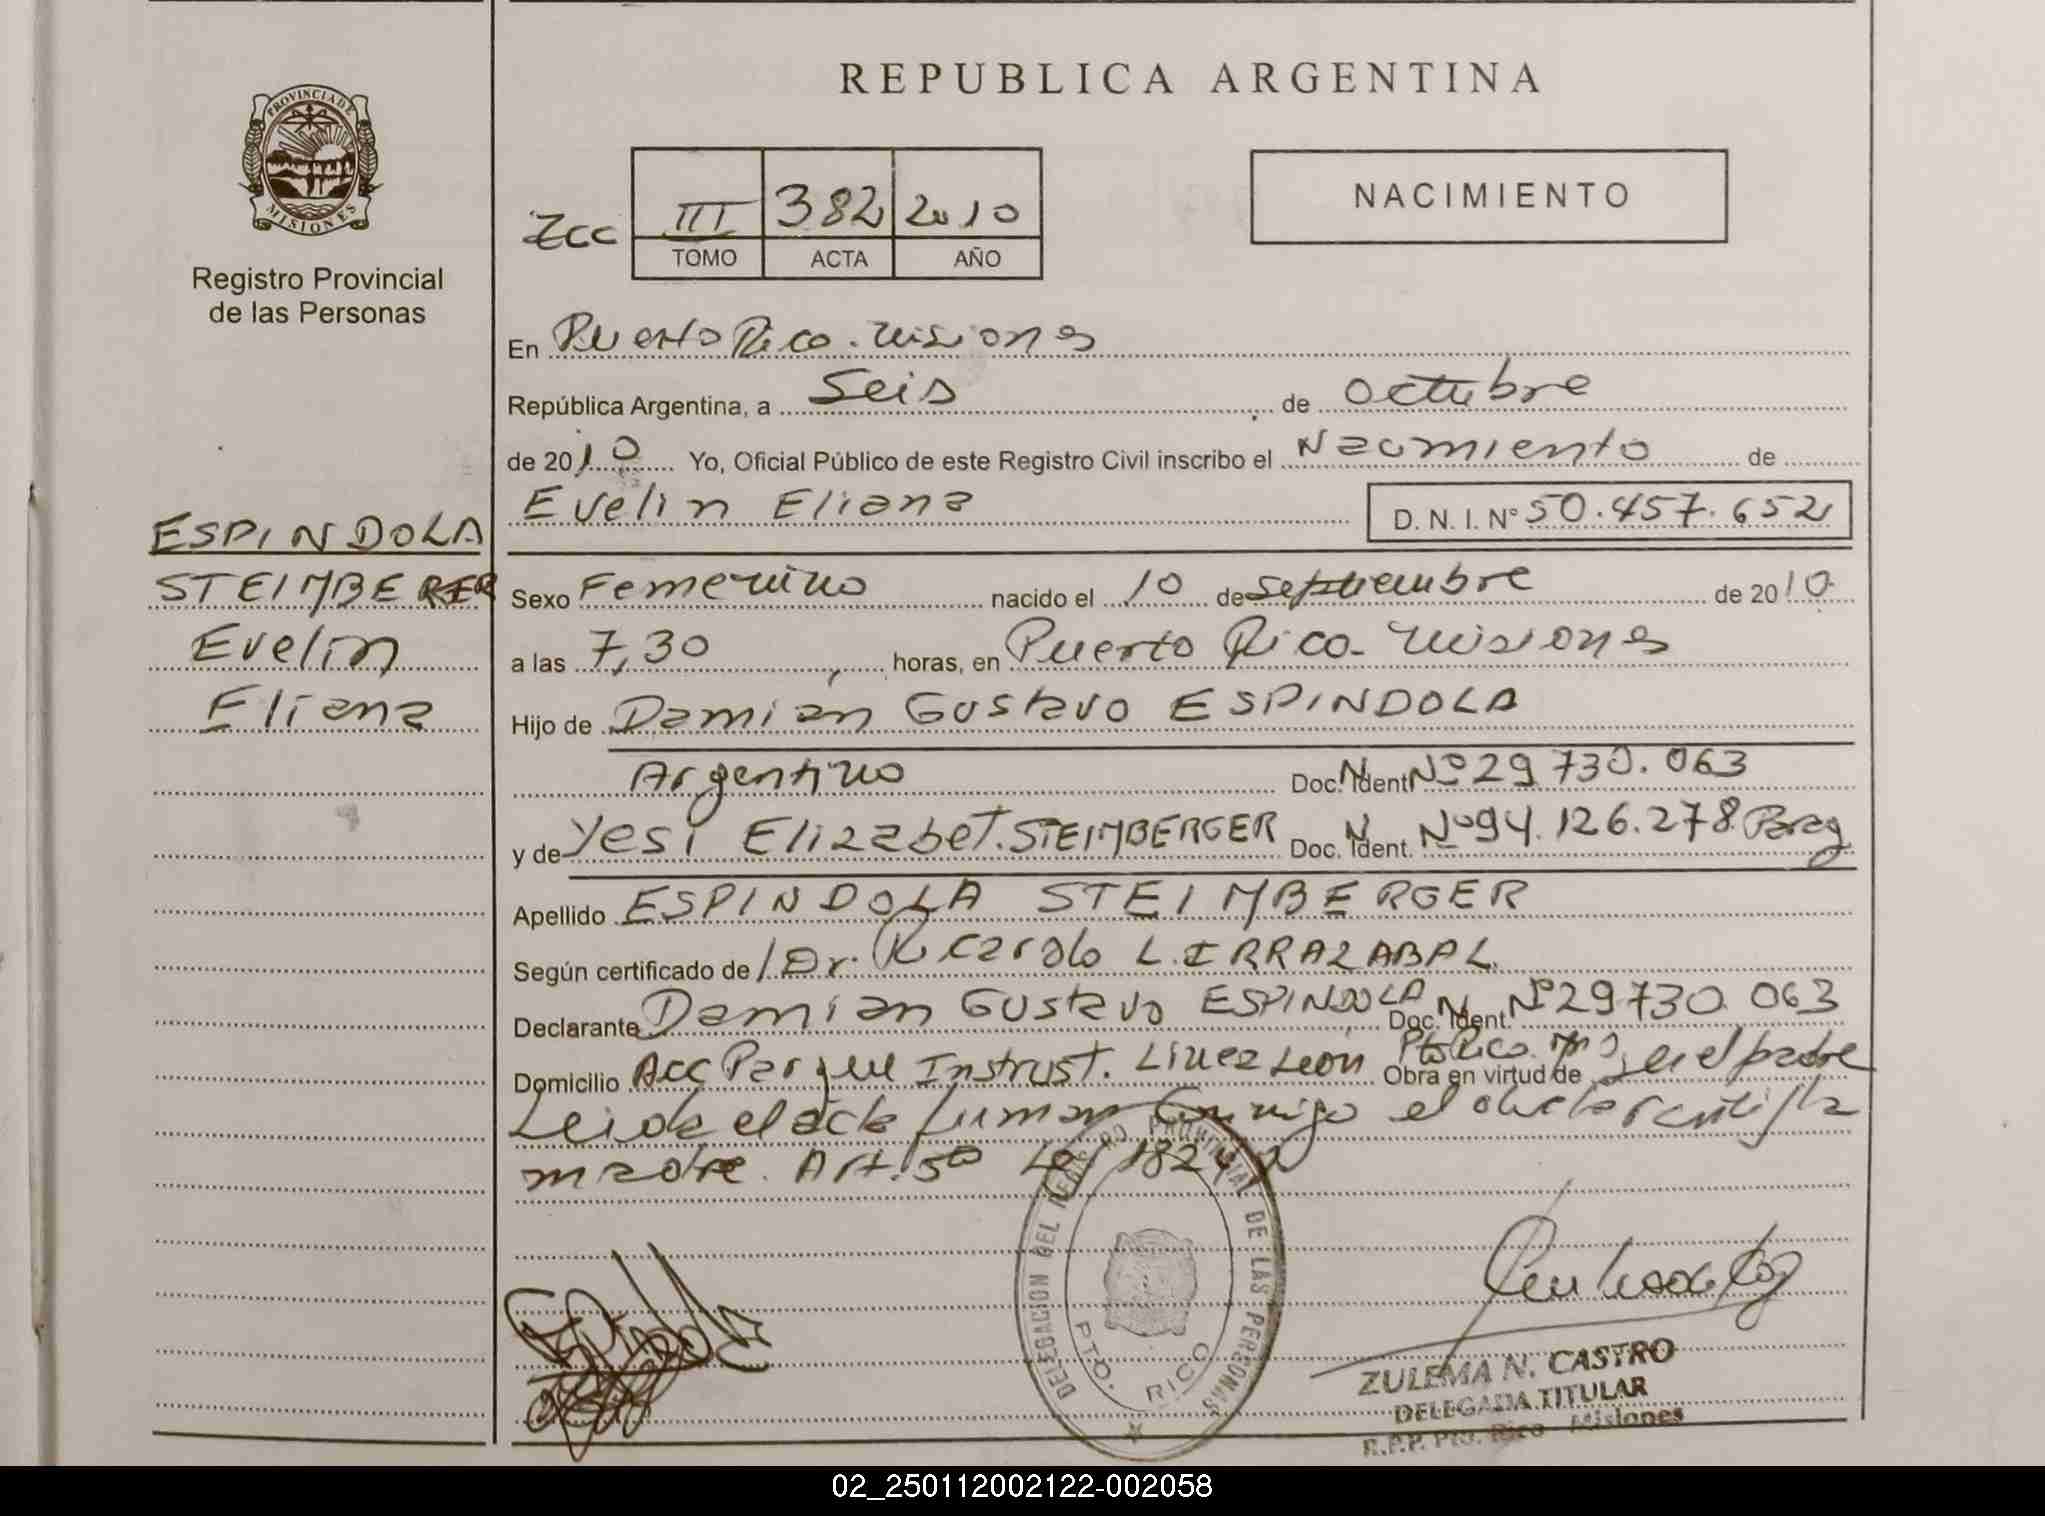 REPUBLICA ARGENTINA
PROVINCIA DE MISIONES
Registro Provincial
de las Personas
Zcc III 382 2010
TOMO ACTA AÑO
NACIMIENTO
En Puerto Rico. Misiones
República Argentina, a Seis de octubre
de 2010 Yo, Oficial Público de este Registro Civil inscribo el Nacimiento de
Evelin Eliana D. N. I. N° 50.457.652
ESPINDOLA
STEIMBERGER
Evelin
Eliana
Sexo Femenino nacido el 10 de Septiembre de 2010
a las 7,30 horas, en Puerto Rico. Misiones
Hijo de Damián Gustavo ESPINDOLA
Argentino Doc. N. Ident. Nº 29 730.063
y de Yesi Elizabet. STEIMBERGER Doc. N. Ident. Nº 94.126.278 Parag
Apellido ESPINDOLA STEIMBERGER
Según certificado de Dr. Ricardo L. IRRAZABAL.
Declarante Damian Gustavo ESPINDOLA Doc. N. Ident. Nº 29730.063
Domicilio Acc Parque Instrust. Linea León Pto Rico. Mns Obra en virtud de ser el padre
Leida el acta firman conmigo el declarante y la
madre. Art. 5º Ley 18248
DELEGACION DEL REGISTRO PROVINCIAL DE LAS PERSONAS
PTO. RICO
ZULEMA N. CASTRO
DELEGADA TITULAR
R.P.P. Pto. Rico - Misiones
02_250112002122-002058